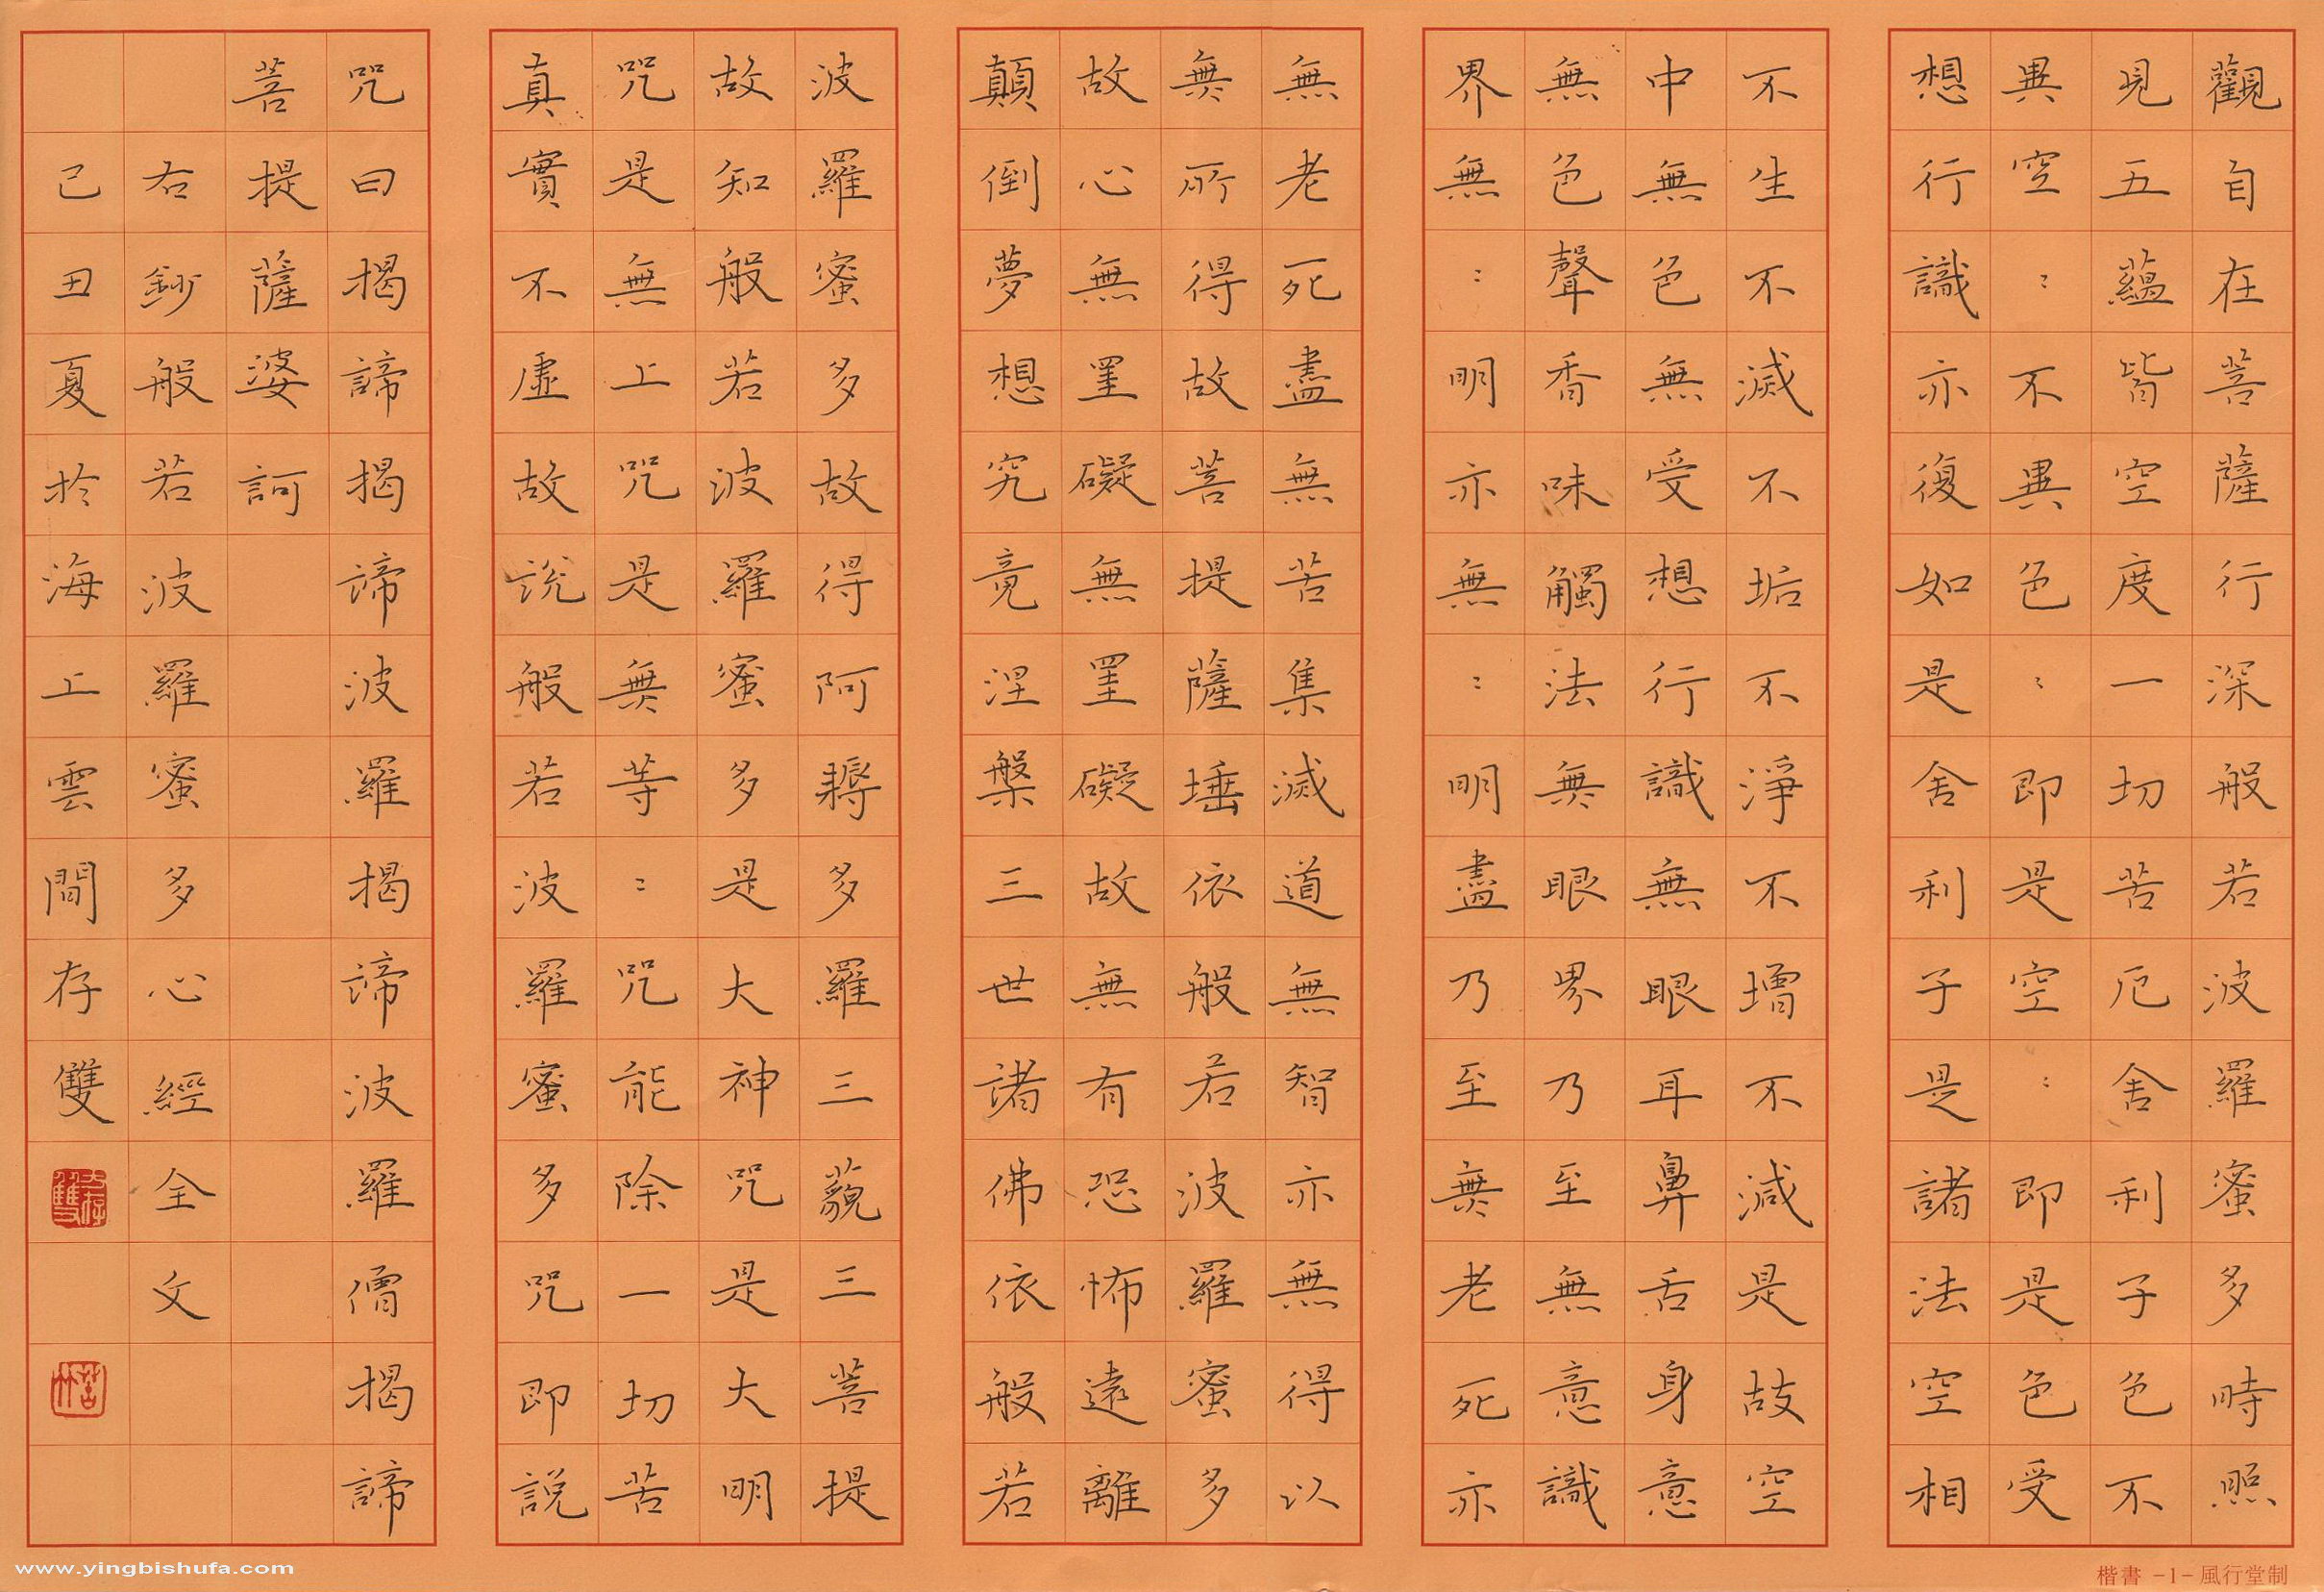 觀自在菩薩行深般若波羅蜜多時照
見五蘊皆空度一切苦厄舍利子色不
異空：不異色：即是空：即是色受
想行識亦復如是舍利子是諸法空相
不生不滅不垢不淨不增不減是故空
中無色無受想行識無眼耳鼻舌身意
無色聲香味觸法無眼界乃至無意識
界無：明亦無：明盡乃至無老死亦
無老死盡無苦集滅道無智亦無得以
無所得故菩提薩埵依般若波羅蜜多
故心無罣礙無罣礙故無有恐怖遠離
顛倒夢想究竟涅槃三世諸佛依般若
波羅蜜多故得阿耨多羅三藐三菩提
故知般若波羅蜜多是大神咒是大明
咒是無上咒是無等：咒能除一切苦
真實不虛故說般若波羅蜜多咒即說
咒曰揭諦揭諦波羅揭諦波羅僧揭諦
菩提薩婆訶
右鈔般若波羅蜜多心經全文
己丑夏於海上雲間存雙
www.yingbishufa.com
楷書 -1- 風行堂制